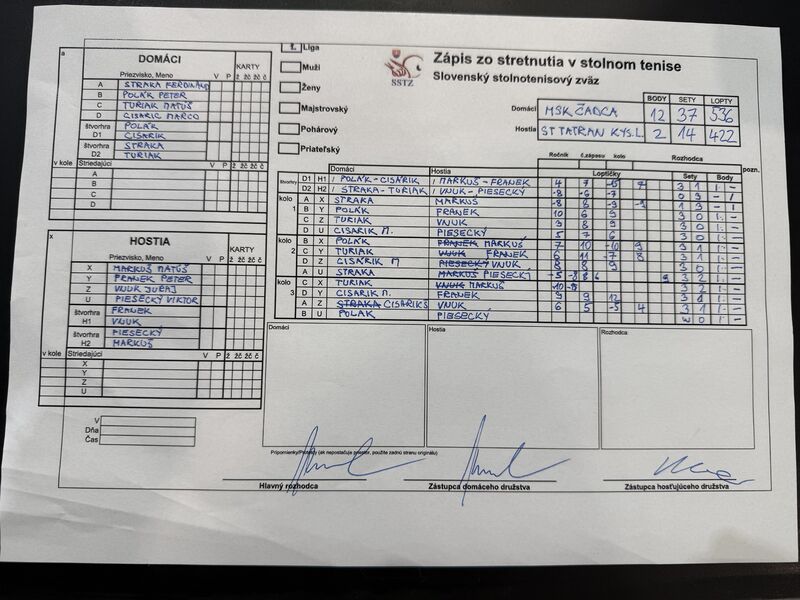 a
DOMÁCI
Priezvisko, Meno V P KARTY ž žč žč č
A STRAKA FERDINAND
B POLÁK PETER
C TURIAK MATÚŠ
D CISÁRIK MARCO
štvorhra D1 POLÁK
CISÁRIK
štvorhra D2 STRAKA
TURIAK
v kole Striedajúci V P ž žč žč č
A
B
C
D
x
HOSTIA
Priezvisko, Meno V P KARTY ž žč žč č
X MARKUŠ MATÚŠ
Y FRANEK PETER
Z VNUK JURAJ
U PIESECKÝ VIKTOR
štvorhra H1 FRANEK
VNUK
štvorhra H2 PIESECKÝ
MARKUŠ
v kole Striedajúci V P ž žč žč č
X
Y
Z
U
V
Dňa
Čas
Liga
Muži
Ženy
Majstrovský
Pohárový
Priateľský
SSTZ
Zápis zo stretnutia v stolnom tenise
Slovenský stolnotenisový zväz
BODY SETY LOPTY
Domáci MSK ČADCA 12 37 536
Hostia ST TATRAN KYS.L. 2 14 422
Ročník č.zápasu kolo Rozhodca
Domáci Hostia Loptičky Sety Body pozn.
štvorhry D1 H1 / POLÁK-CISÁRIK / MARKUŠ-FRANEK 4 7 7 3 1 1 : -
D2 H2 / STRAKA-TURIAK / VNUK-PIESECKÝ -8 -6 -7 0 3 - 1
kolo 1 A X STRAKA MARKUŠ 1 3 - 1
B Y POLÁK FRANEK 10 6 9 3 0 1 : -
C Z TURIAK VNUK 3 8 9 3 0 1 : -
D U CISÁRIK M. PIESECKÝ 5 7 6 3 0 1 : -
kolo 2 B X POLÁK FRANEK MARKUŠ 7 10 -10 9 3 1 1 : -
C Y TURIAK VNUK FRANEK 6 11 -7 8 3 1 1 : -
D Z CISÁRIK M PIESECKÝ VNUK 8 8 9 3 0 1 : -
A U STRAKA MARKUŠ PIESECKÝ -5 -8 8 6 9 3 2 1 : -
kolo 3 C X TURIAK VNUK MARKUŠ
D Y CISÁRIK M. FRANEK 9 9 12
A Z STRAKA CISÁRIK S VNUK 6 5 -5 4 3 1 1 : -
B U POLÁK PIESECKÝ W O 1 : -
Domáci Hostia Rozhodca
Pripomienky/Protesty (ak nepostačuje priestor, použite zadnú stranu originálu)
Hlavný rozhodca Zástupca domáceho družstva Zástupca hosťujúceho družstva